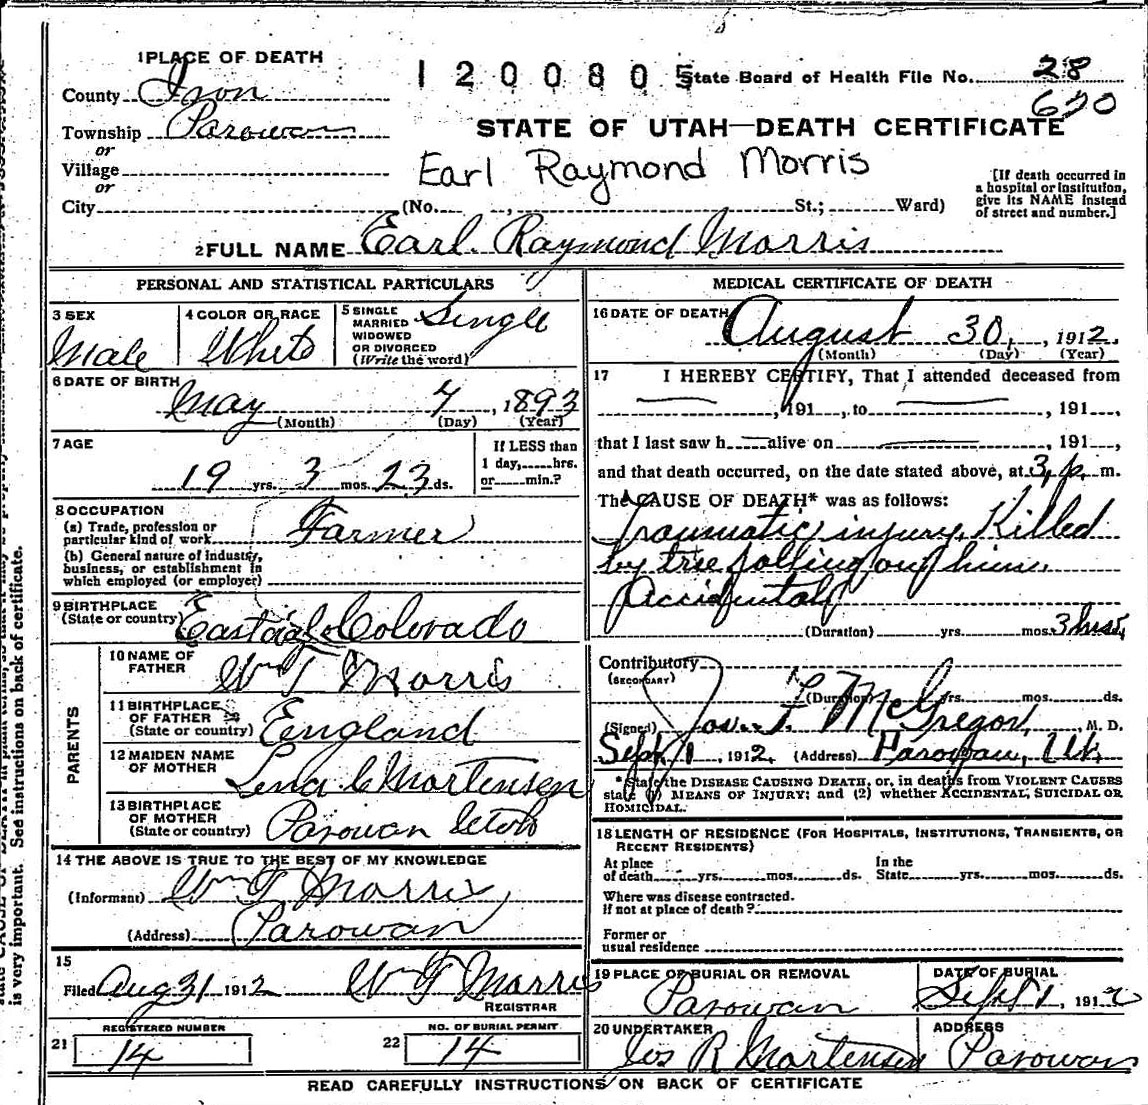 1 PLACE OF DEATH
1200805 State Board of Health File No. 28
620
County Iron
Township Parowan
or
Village
or
City (No. , St.; Ward)
STATE OF UTAH—DEATH CERTIFICATE
Earl Raymond Morris
[If death occurred in
a hospital or institution,
give its NAME instead
of street and number.]
2 FULL NAME Earl Raymond Morris
PERSONAL AND STATISTICAL PARTICULARS
3 SEX
Male
4 COLOR OR RACE
White
5 SINGLE
MARRIED
WIDOWED
OR DIVORCED
(Write the word)
Single
6 DATE OF BIRTH
May 7, 1893
(Month) (Day) (Year)
7 AGE
19 yrs. 3 mos. 23 ds.
If LESS than
1 day, hrs.
or min.?
8 OCCUPATION
(a) Trade, profession or
particular kind of work
Farmer
(b) General nature of industry,
business, or establishment in
which employed (or employer)
9 BIRTHPLACE
(State or country)
Colorado
PARENTS
10 NAME OF
FATHER
Wm T Morris
11 BIRTHPLACE
OF FATHER
(State or country)
England
12 MAIDEN NAME
OF MOTHER
Lena C Mortensen
13 BIRTHPLACE
OF MOTHER
(State or country)
Parowan Utah
14 THE ABOVE IS TRUE TO THE BEST OF MY KNOWLEDGE
(Informant) Wm T Morris
(Address) Parowan
15
Filed Aug 31 1912 W T Morris
REGISTRAR
REGISTERED NUMBER
21 14
NO. OF BURIAL PERMIT
22 14
MEDICAL CERTIFICATE OF DEATH
16 DATE OF DEATH
August 30, 1912
(Month) (Day) (Year)
17 I HEREBY CERTIFY, That I attended deceased from
, 191 , to , 191 ,
that I last saw h alive on , 191 ,
and that death occurred, on the date stated above, at 3 p. m.
The CAUSE OF DEATH* was as follows:
Traumatic injury, Killed
by tree falling on him.
Accidental
(Duration) yrs. mos. 3 hrs.
Contributory
(SECONDARY)
(Duration) yrs. mos. ds.
(Signed) Jos. F. McGregor, M. D.
Sept 1, 1912 (Address) Parowan, Ut.
*State the DISEASE CAUSING DEATH, or, in deaths from VIOLENT CAUSES
state (1) MEANS OF INJURY; and (2) whether ACCIDENTAL, SUICIDAL OR
HOMICIDAL.
18 LENGTH OF RESIDENCE (FOR HOSPITALS, INSTITUTIONS, TRANSIENTS, OR
RECENT RESIDENTS)
At place
of death yrs. mos. ds.
In the
State yrs. mos. ds.
Where was disease contracted.
if not at place of death?
Former or
usual residence
19 PLACE OF BURIAL OR REMOVAL
Parowan
DATE OF BURIAL
Sept 1, 1912
20 UNDERTAKER
Jos R Mortensen
ADDRESS
Parowan
READ CAREFULLY INSTRUCTIONS ON BACK OF CERTIFICATE
is very important. See instructions on back of certificate.